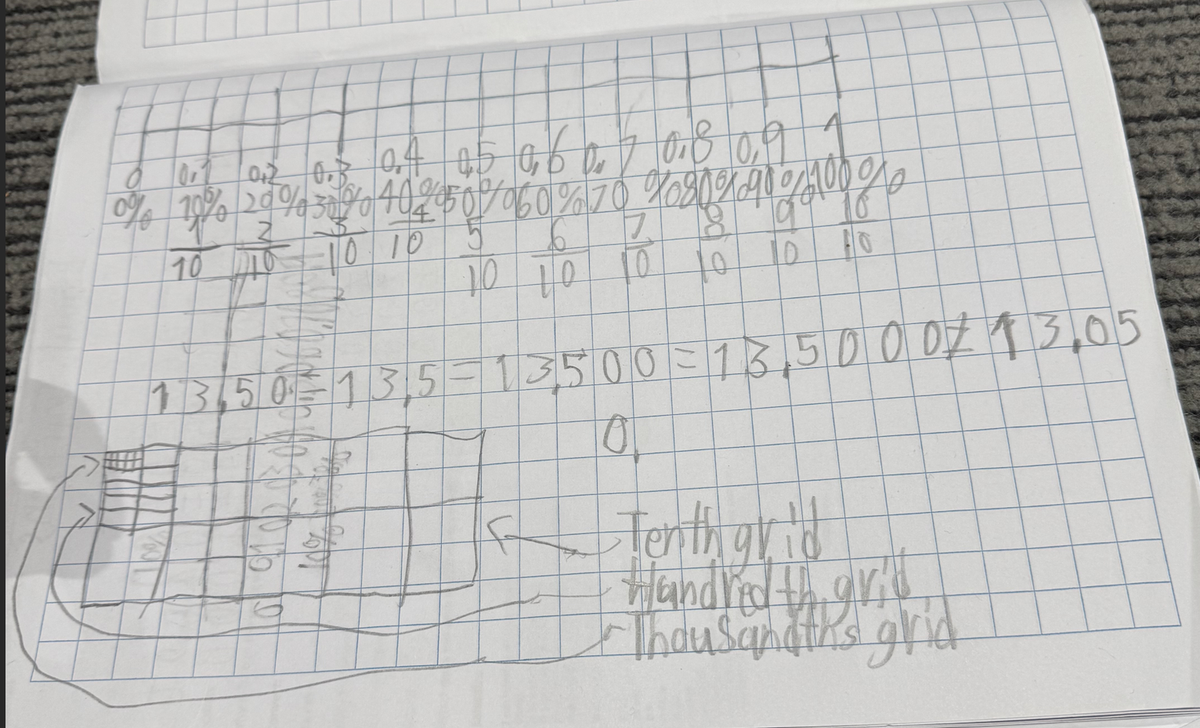 0 0,1 0,2 0,3 0,4 0,5 0,6 0,7 0,8 0,9 1
0% 10% 20% 30% 40% 50% 60% 70% 80% 90% 100%
1/10 2/10 3/10 4/10 5/10 6/10 7/10 8/10 9/10 10/10
13,50 = 13,5 = 13,500 = 13,5000 ≠ 13,05
0,
Tenth grid
Handredth grid
Thousandths grid